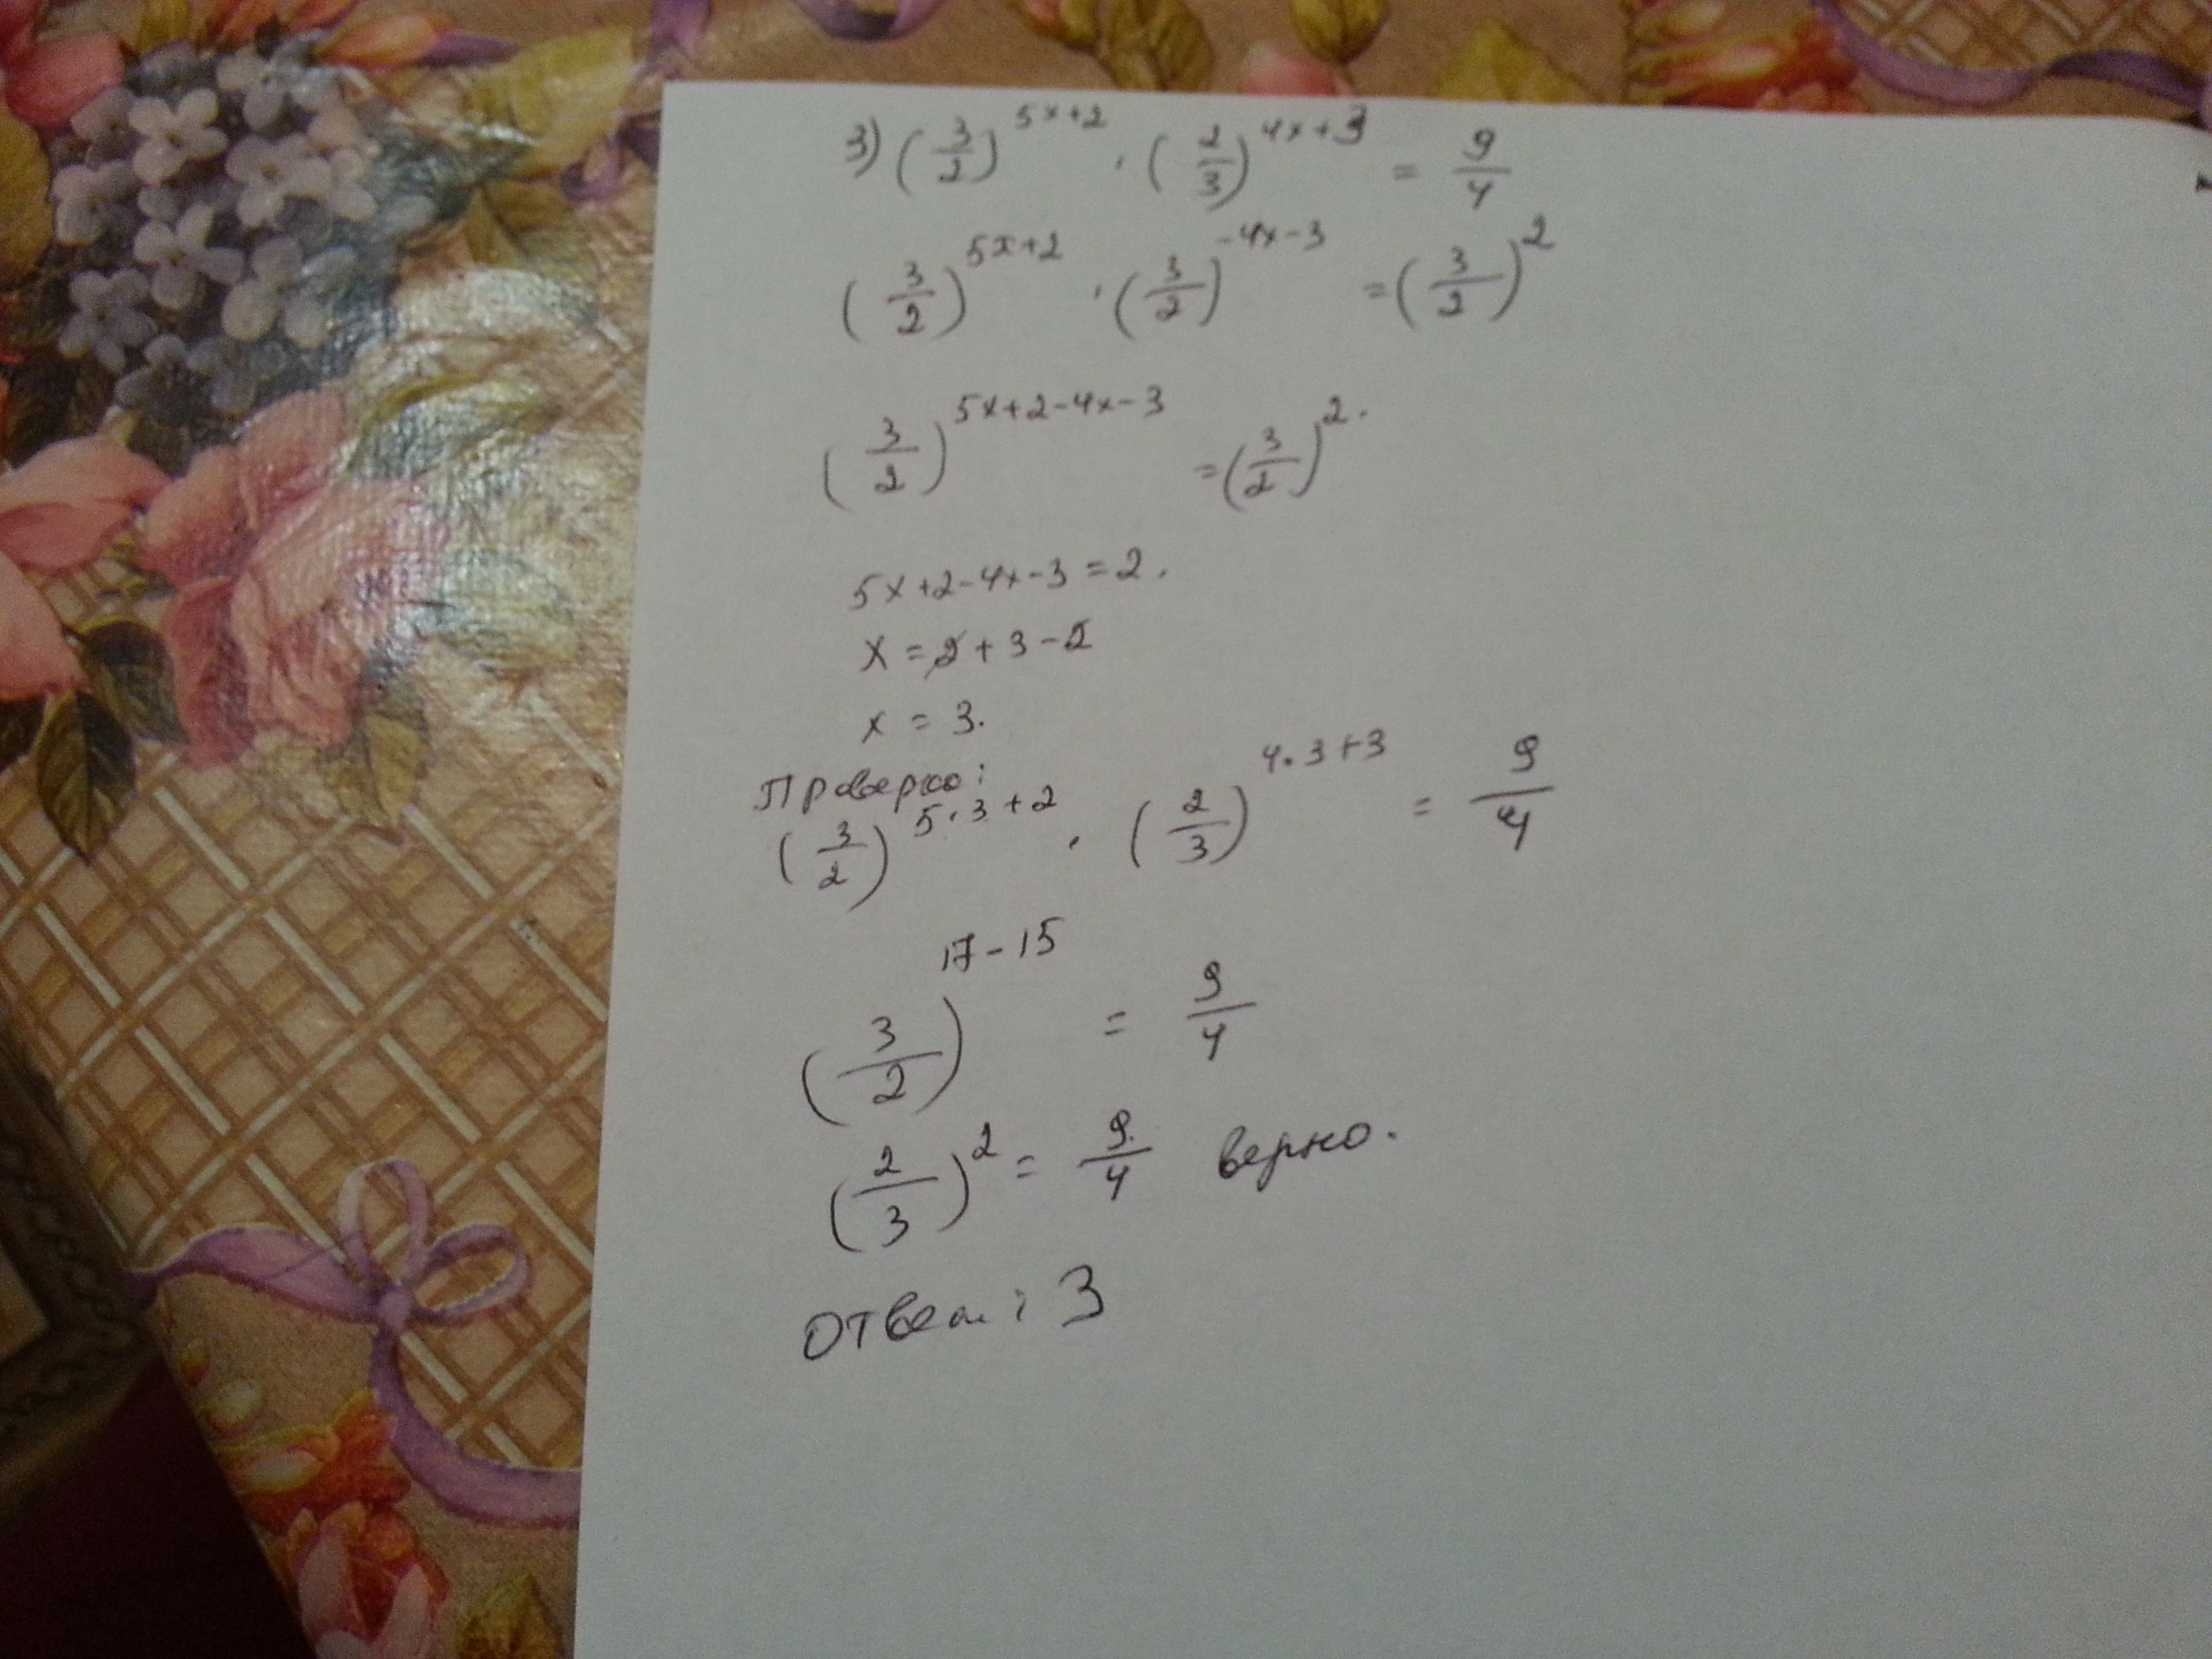 3) (3/2)^(5x+2) · (2/3)^(4x+3) = 9/4
(3/2)^(5x+2) · (3/2)^(-4x-3) = (3/2)^2
(3/2)^(5x+2-4x-3) = (3/2)^2.
5x+2-4x-3=2.
x=2+3-2
x = 3.
Проверка:
(3/2)^(5·3+2) · (2/3)^(4·3+3) = 9/4
(3/2)^(17-15) = 9/4
(2/3)^2 = 9/4 верно.
Ответ: 3